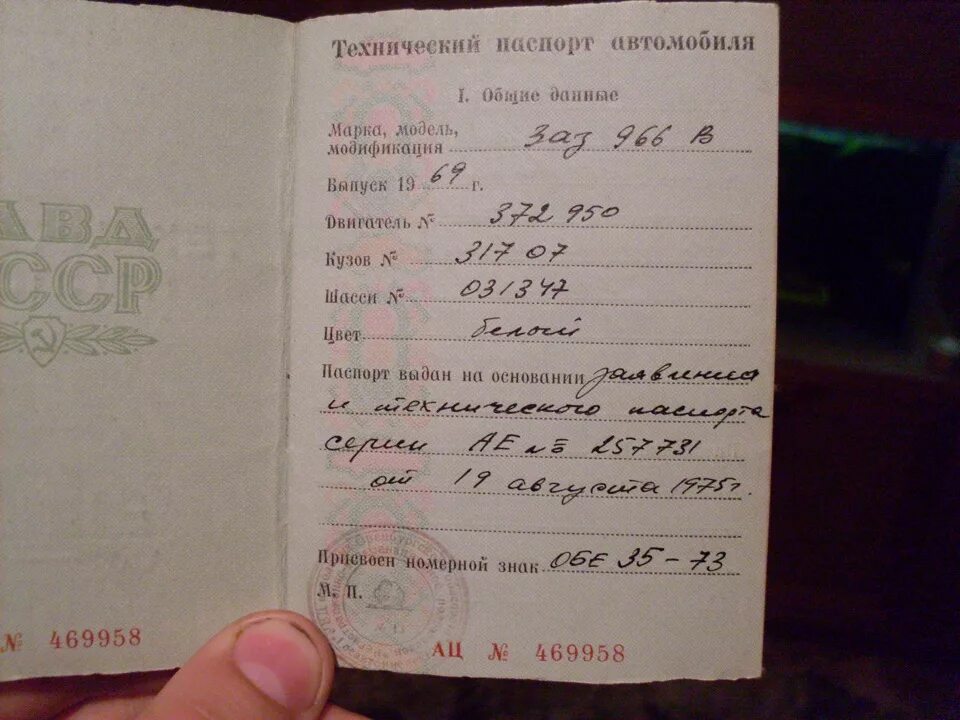 АВД
СССР
№ 469958
Технический паспорт автомобиля
I. Общие данные
Марка, модель,
модификация Заз 966 В
Выпуск 19 69 г.
Двигатель № 372 950
Кузов № 317 07
Шасси № 031347
Цвет белый
Паспорт выдан на основании заявления
и технического паспорта
серии АЕ № 257731
от 19 августа 1975г.
Присвоен номерной знак ОБЕ 35-73
М. П.
АЦ № 469958